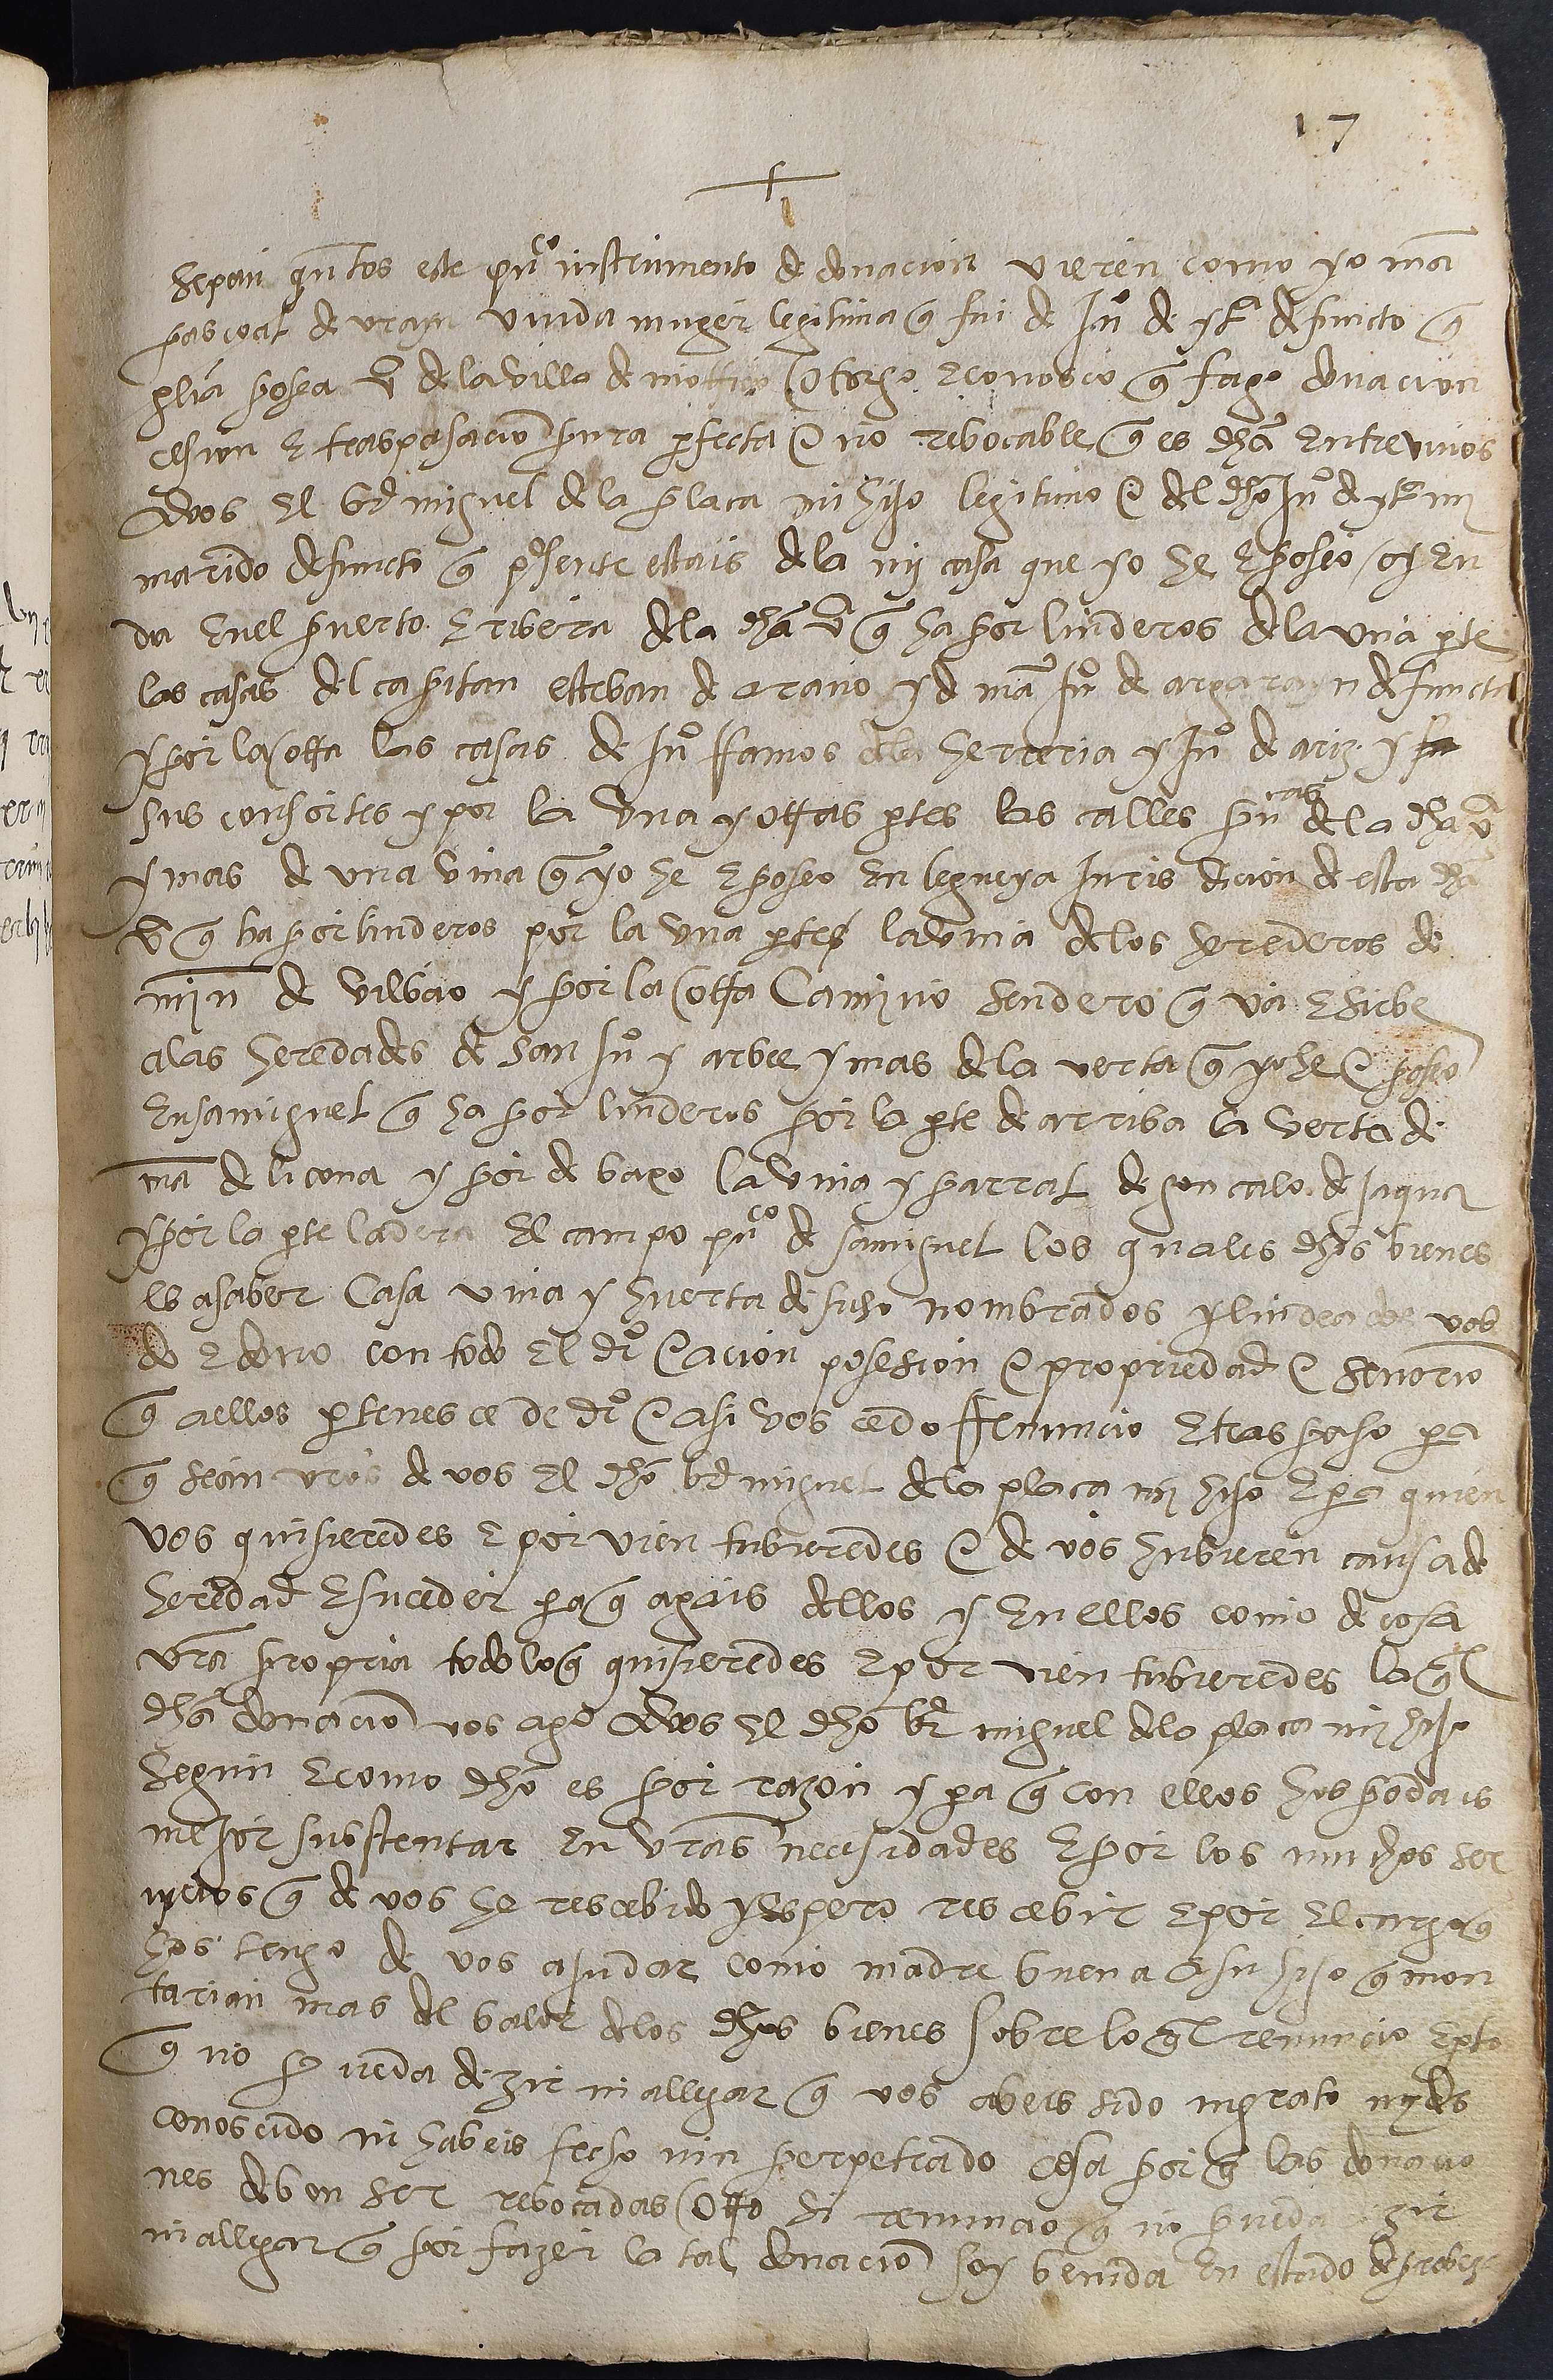 17
Sepan qntos este puco instrumento de donacion vieren como yo ma
pascoal de viuda muger legitima q fui de Juo de defuncto q
gloria posea va de la villa de motrico otorgo e conosco q fago donacion
cesion e traspasacio pura perfecta e no rebocable q es dha entre vivos
a vos el br miguel de la placa mi hijo legitimo e del dho Juo de mi
marido defuncto q presente estais de la mi casa que yo he e poseo oy en
dia en el puerto e ribera de la dha va q ha por linderos de la vna pte
las casas del capitan esteban de arano y de ma Juo de argarayn defuncto
y por la otra las casas de Juo Ramos de la herreria y Juo de ariz y su
sus consortes y por la vna y otras ptes las calles pucas de la dha va
y mas de vna vina q yo he e poseo en legueya Jurisdicion de esta dha
va q ha por linderos por la vna pte la vina de los herederos de
min de vilbao y por la otra Camino sendero q va e sirbe
a las heredades de san Juo y arbee y mas de la verta q yo he e poseo
en samiguel q ha por linderos por la pte de arriba la verta de
ma de licona y por de baxo la vina y parral de goncalo de
y por la pte ladera el campo puco de samiguel los quales dhos bienes
es a saber Casa vina y huerta de suso nombrados y lindeados vos
do e dono con todo el dro e acion posesion e propriedad e senorio
q a ellos pertenesce de dro e asi vos cedo Renuncio e traspaso pa
q sean vros de vos el dho br miguel de la placa mi hijo e pa quien
vos quisieredes e por vien tubieredes e de vos hubieren causa de
heredad e suceder pa q agais dellos y en ellos como de cosa
vra propria todo lo q quisieredes e por vien tubieredes la ql
dha donacio vos ago a vos el dho br miguel de la placa mi hijo
segun e como dho es por razon y pa q con ellos hos podais
mejor substentar en vras necesidades e por los muchos ser
vicios q de vos he rescebido y espero rescebir e por el cargo q
hos tengo de vos ajudar como madre buena a su hijo q mon
tarian mas del balor de los dhos bienes sobre lo ql renuncio e pto
q no pueda dezir ni allegar q vos abeis sido ingrato ny des
conoscido ni habeis fecho nin perpetrado cosa por q las donacio
nes deben ser rebocadas Otro si renuncio q no pueda dezir
ni allegar q por fazer la tal donacio soy benida en estado de probeza